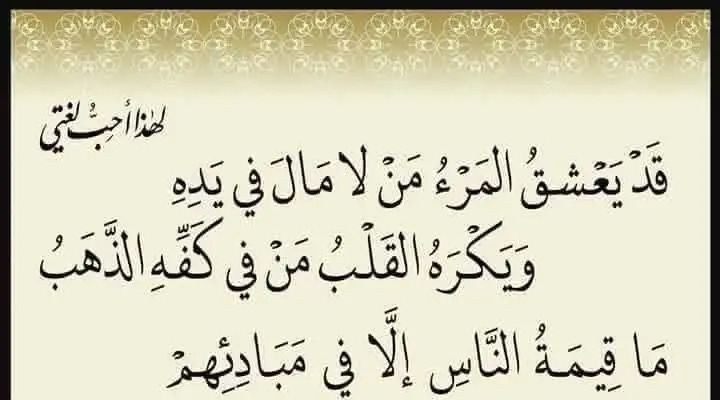 لهٰذا أحِبُّ لغتي
قَدْ يَعْشقُ المَرْءُ مَنْ لا مَالَ في يَدِهِ
وَيَكْرَهُ القَلْبُ مَنْ في كَفِّهِ الذَّهَبُ
مَا قِيمَةُ النَّاسِ إلَّا في مَبَادِئِهمْ